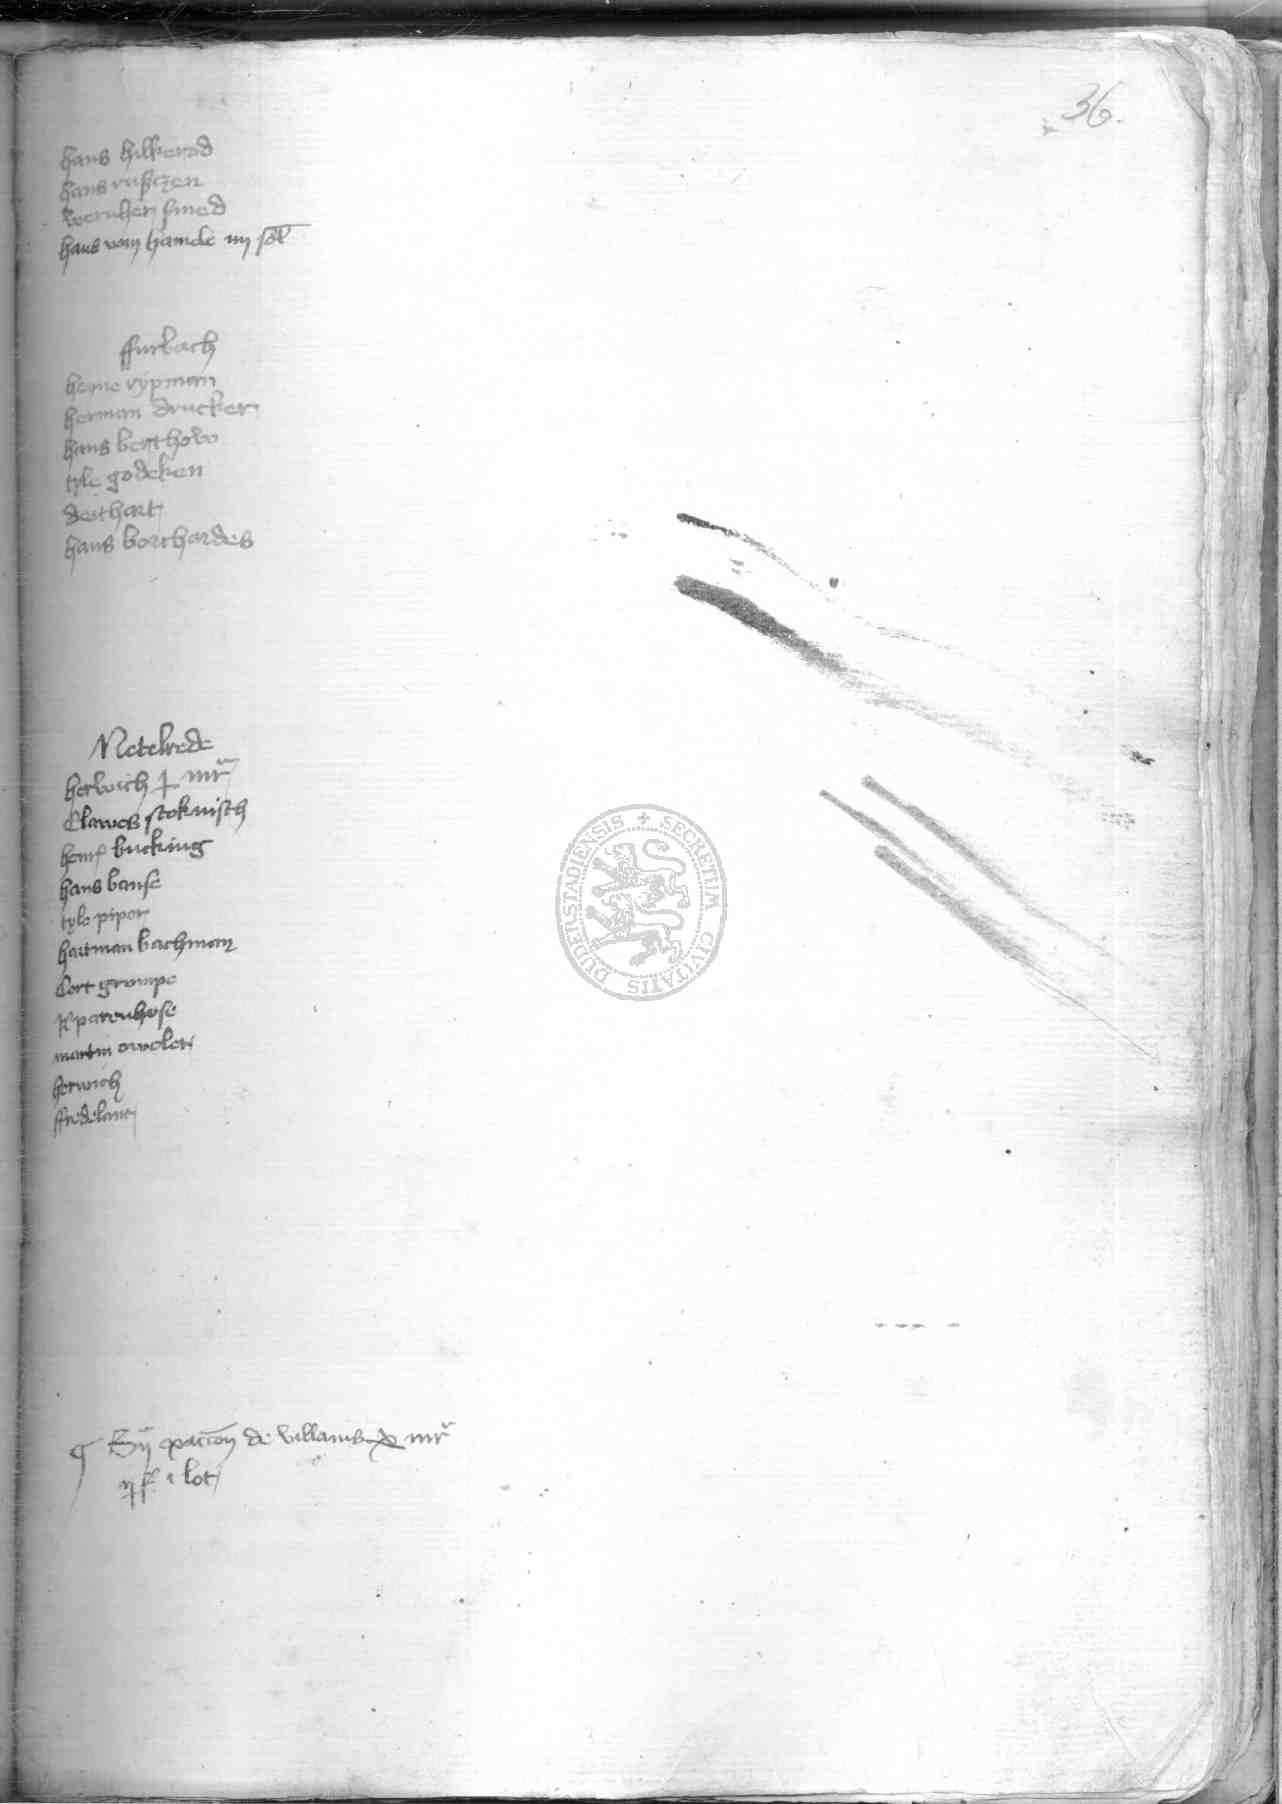 36.
hans hilkerod
hans
wernher smed
hans vom hamele iiij sol
ffurbach
heyne rypman
herman drucker
hans berthold
tyle godeken
dethart
hans borchardes
Netelrede
herwich mr
Clawes stokvisch
henr bucking
hans banse
tyle piper
hartman bachman
Cort grompe
sparenhose
martin
herwich
ffredelant
de villanis mr
i lot
SECRETUM CIVITATIS DUDERSTADIENSIS